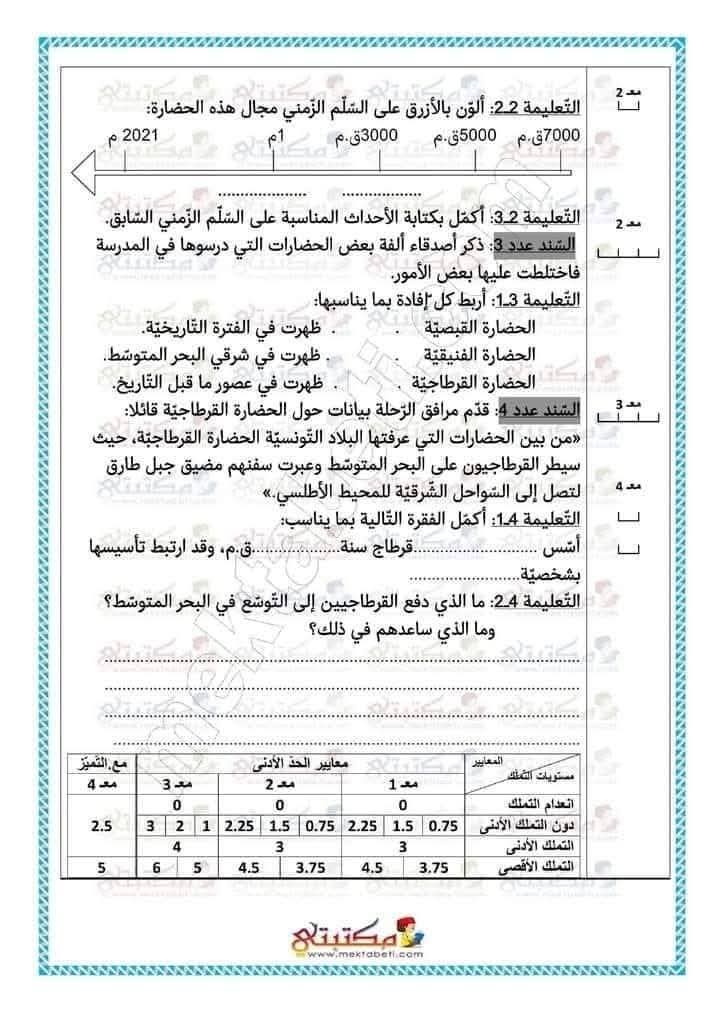 معـ 2
التّعليمة 2ـ2: ألوّن بالأزرق على السّلّم الزّمني مجال هذه الحضارة:
7000ق.م 5000ق.م 3000ق.م 1م 2021 م
.................... ....................
معـ 2
التّعليمة 2ـ3: أكمّل بكتابة الأحداث المناسبة على السّلّم الزّمني السّابق.
السّند عدد 3: ذكر أصدقاء ألفة بعض الحضارات التي درسوها في المدرسة
فاختلطت عليها بعض الأمور.
التّعليمة 3ـ1: أربط كل إفادة بما يناسبها:
الحضارة القبصيّة . . ظهرت في الفترة التّاريخيّة.
الحضارة الفنيقيّة . . ظهرت في شرقي البحر المتوسّط.
الحضارة القرطاجيّة . . ظهرت في عصور ما قبل التّاريخ.
معـ 3
السّند عدد 4: قدّم مرافق الرّحلة بيانات حول الحضارة القرطاجيّة قائلا:
«من بين الحضارات التي عرفتها البلاد التّونسيّة الحضارة القرطاجيّة، حيث
سيطر القرطاجيون على البحر المتوسّط وعبرت سفنهم مضيق جبل طارق
معـ 4
لتصل إلى السّواحل الشّرقيّة للمحيط الأطلسي.»
التّعليمة 4ـ1: أكمّل الفقرة التّالية بما يناسب:
أسّس ............................قرطاج سنة....................ق.م، وقد ارتبط تأسيسها
بشخصيّة.........................
التّعليمة 4ـ2: ما الذي دفع القرطاجيين إلى التّوسّع في البحر المتوسّط؟
وما الذي ساعدهم في ذلك؟
المعايير معايير الحدّ الأدنى مع.التّميّز
مستويات التّملّك معـ 1 معـ 2 معـ 3 معـ 4
انعدام التملك 0 0 0
دون التملك الأدنى 0.75 1.5 2.25 0.75 1.5 2.25 1 2 3 2.5
التملك الأدنى 3 3 4
التملك الأقصى 3.75 4.5 3.75 4.5 5 6 5
مكتبتي
www.mektabeti.com
mektabeti.com